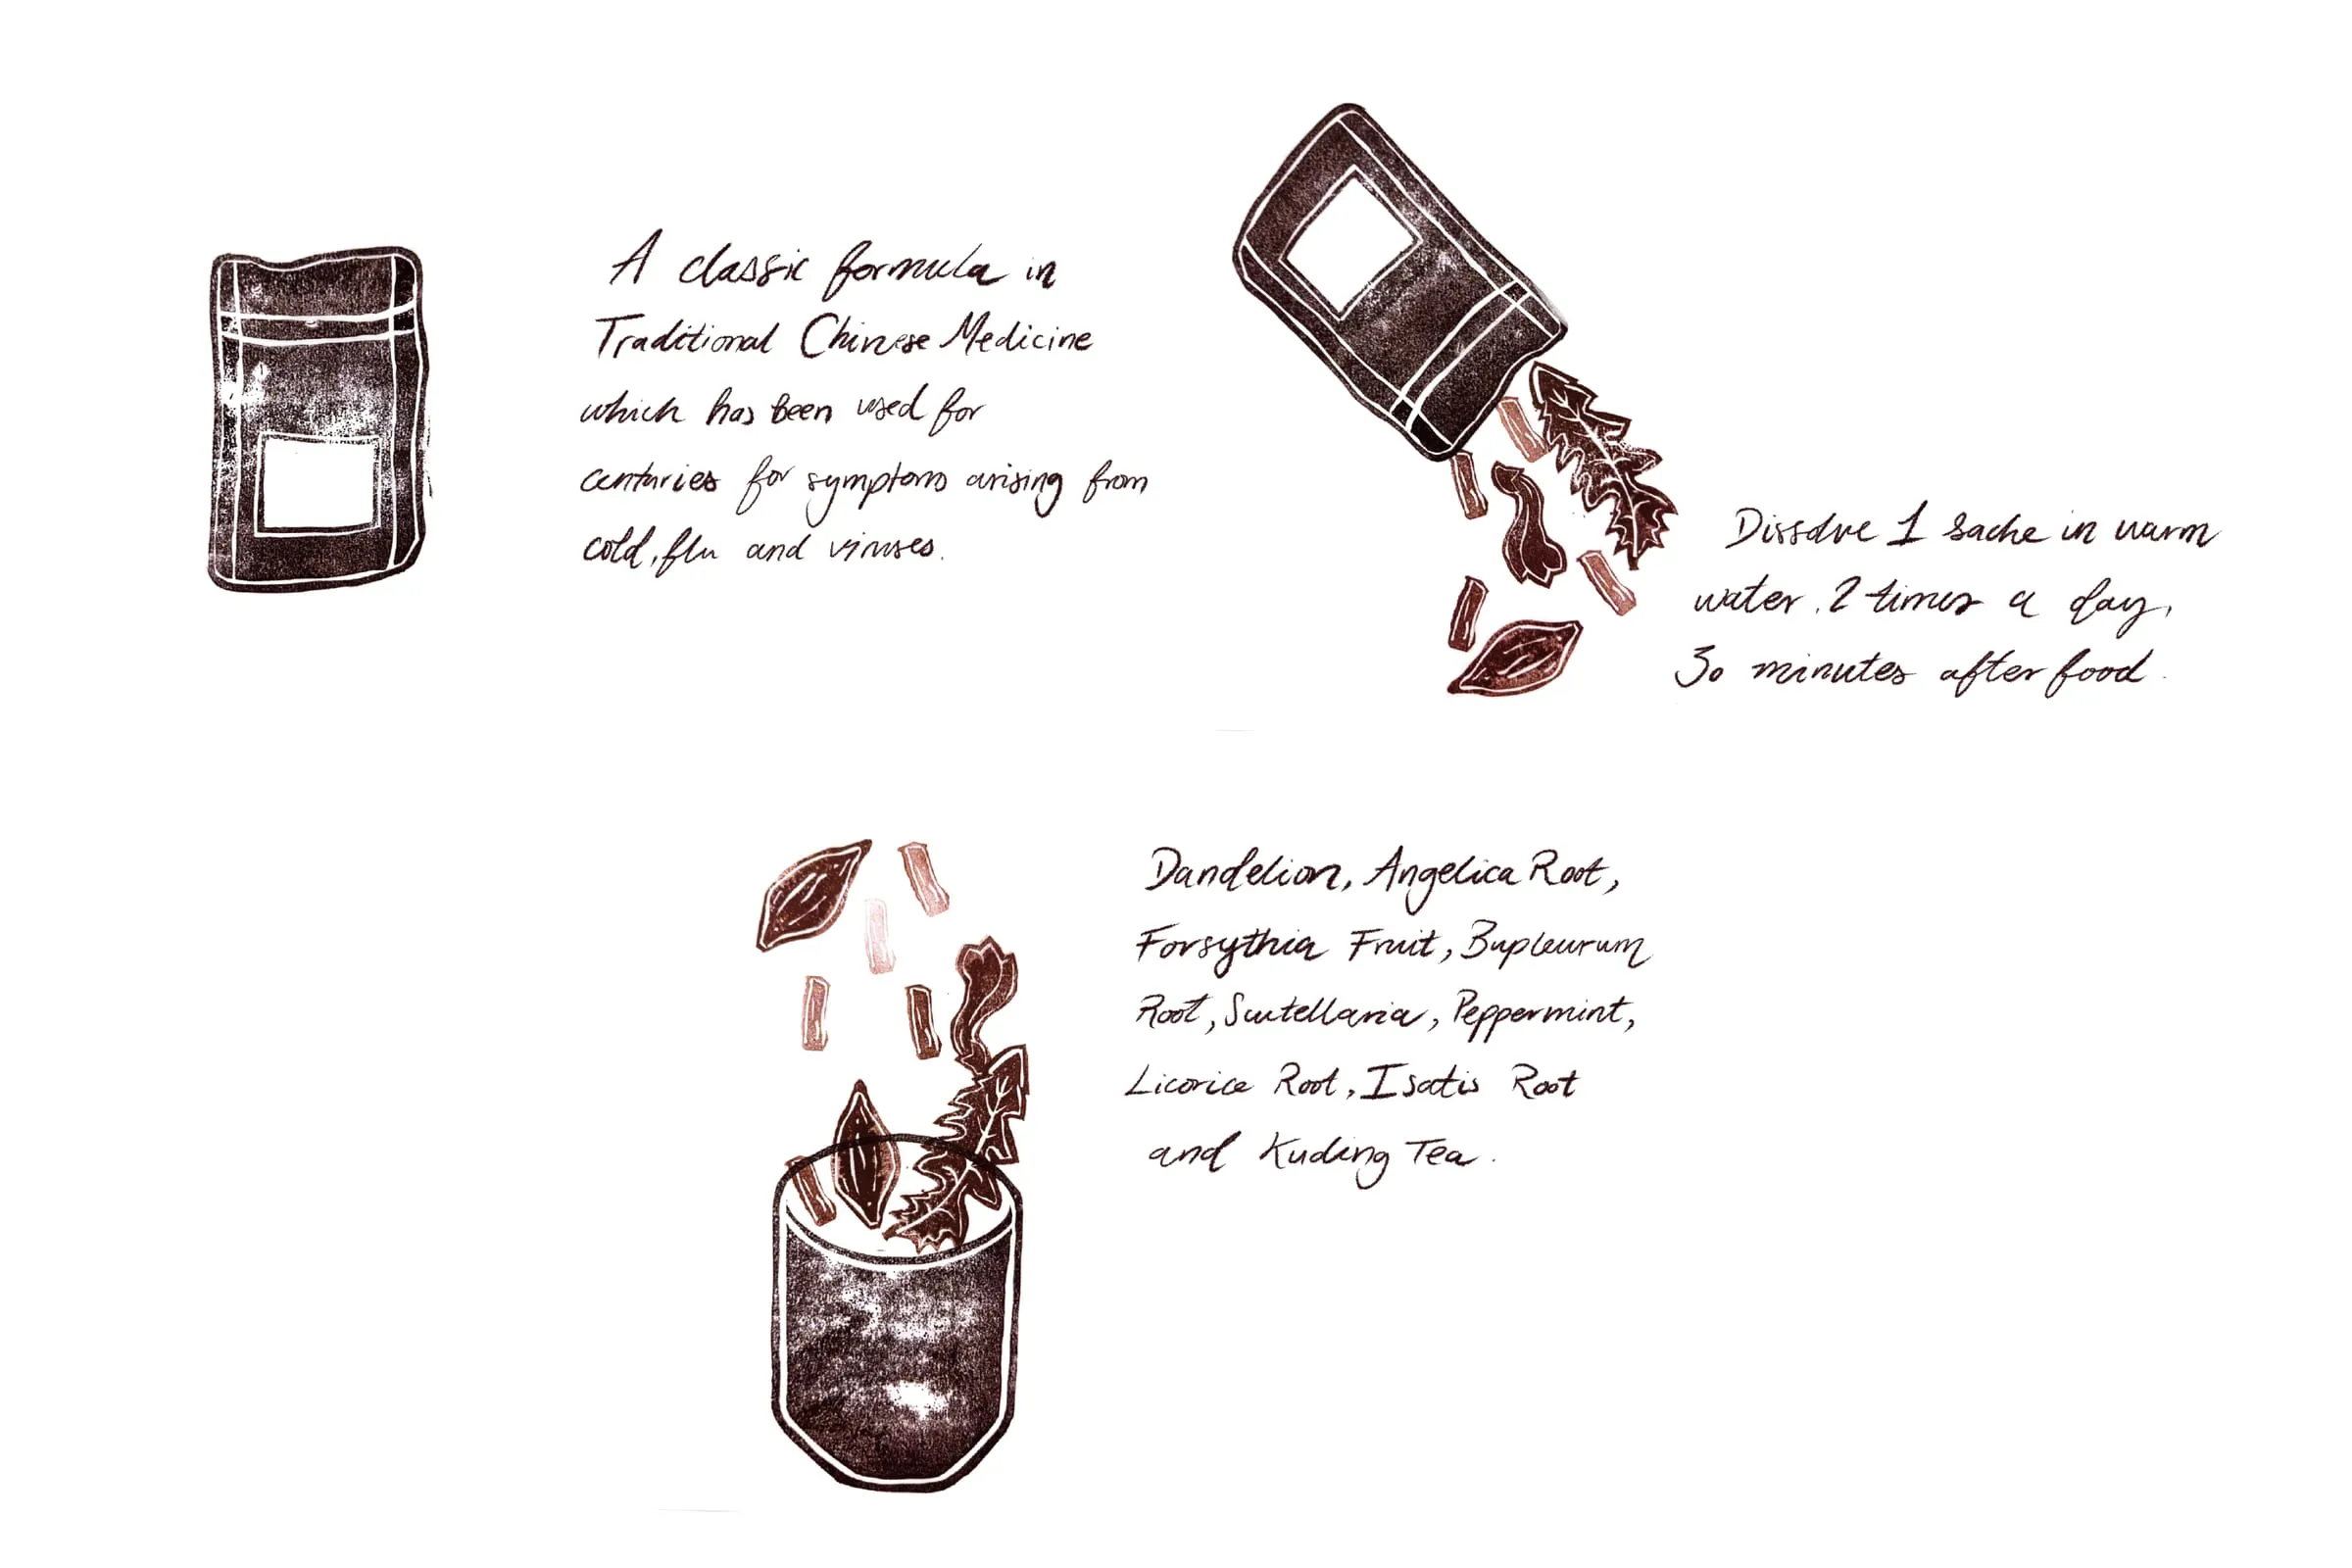 A classic formula in
Traditional Chinese Medicine
which has been used for
centuries for symptoms arising from
cold, flu and viruses.
Dissolve 1 sache in warm
water, 2 times a day,
30 minutes after food.
Dandelion, Angelica Root,
Forsythia Fruit, Bupleurum
Root, Scutellaria, Peppermint,
Licorice Root, Isatis Root
and Kuding Tea.